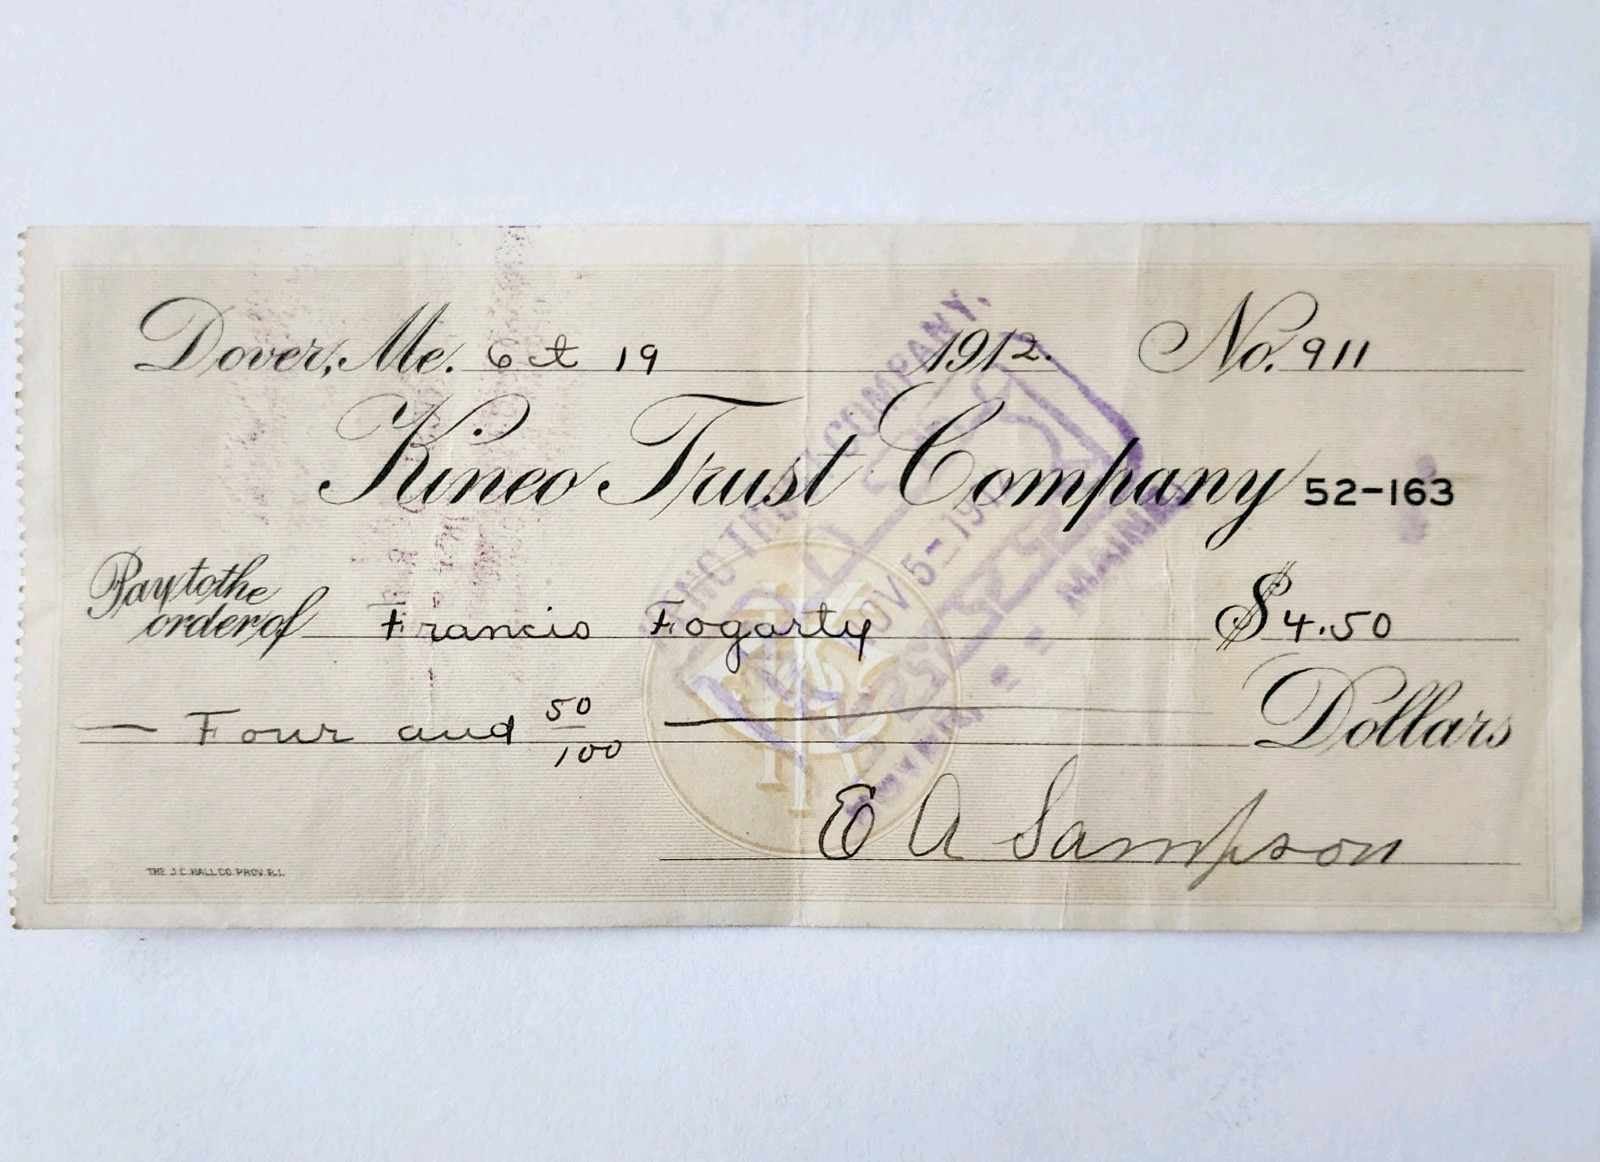 Dover, Me. Oct 19 1912. No. 911
Kineo Trust Company 52-163
Pay to the
order of Francis Fogarty $4.50
— Four and 50/100 — Dollars
E A Sampson
THE J.C. HALL CO. PROV. R.I.
COMPANY.
NOV 5-19
MAINE